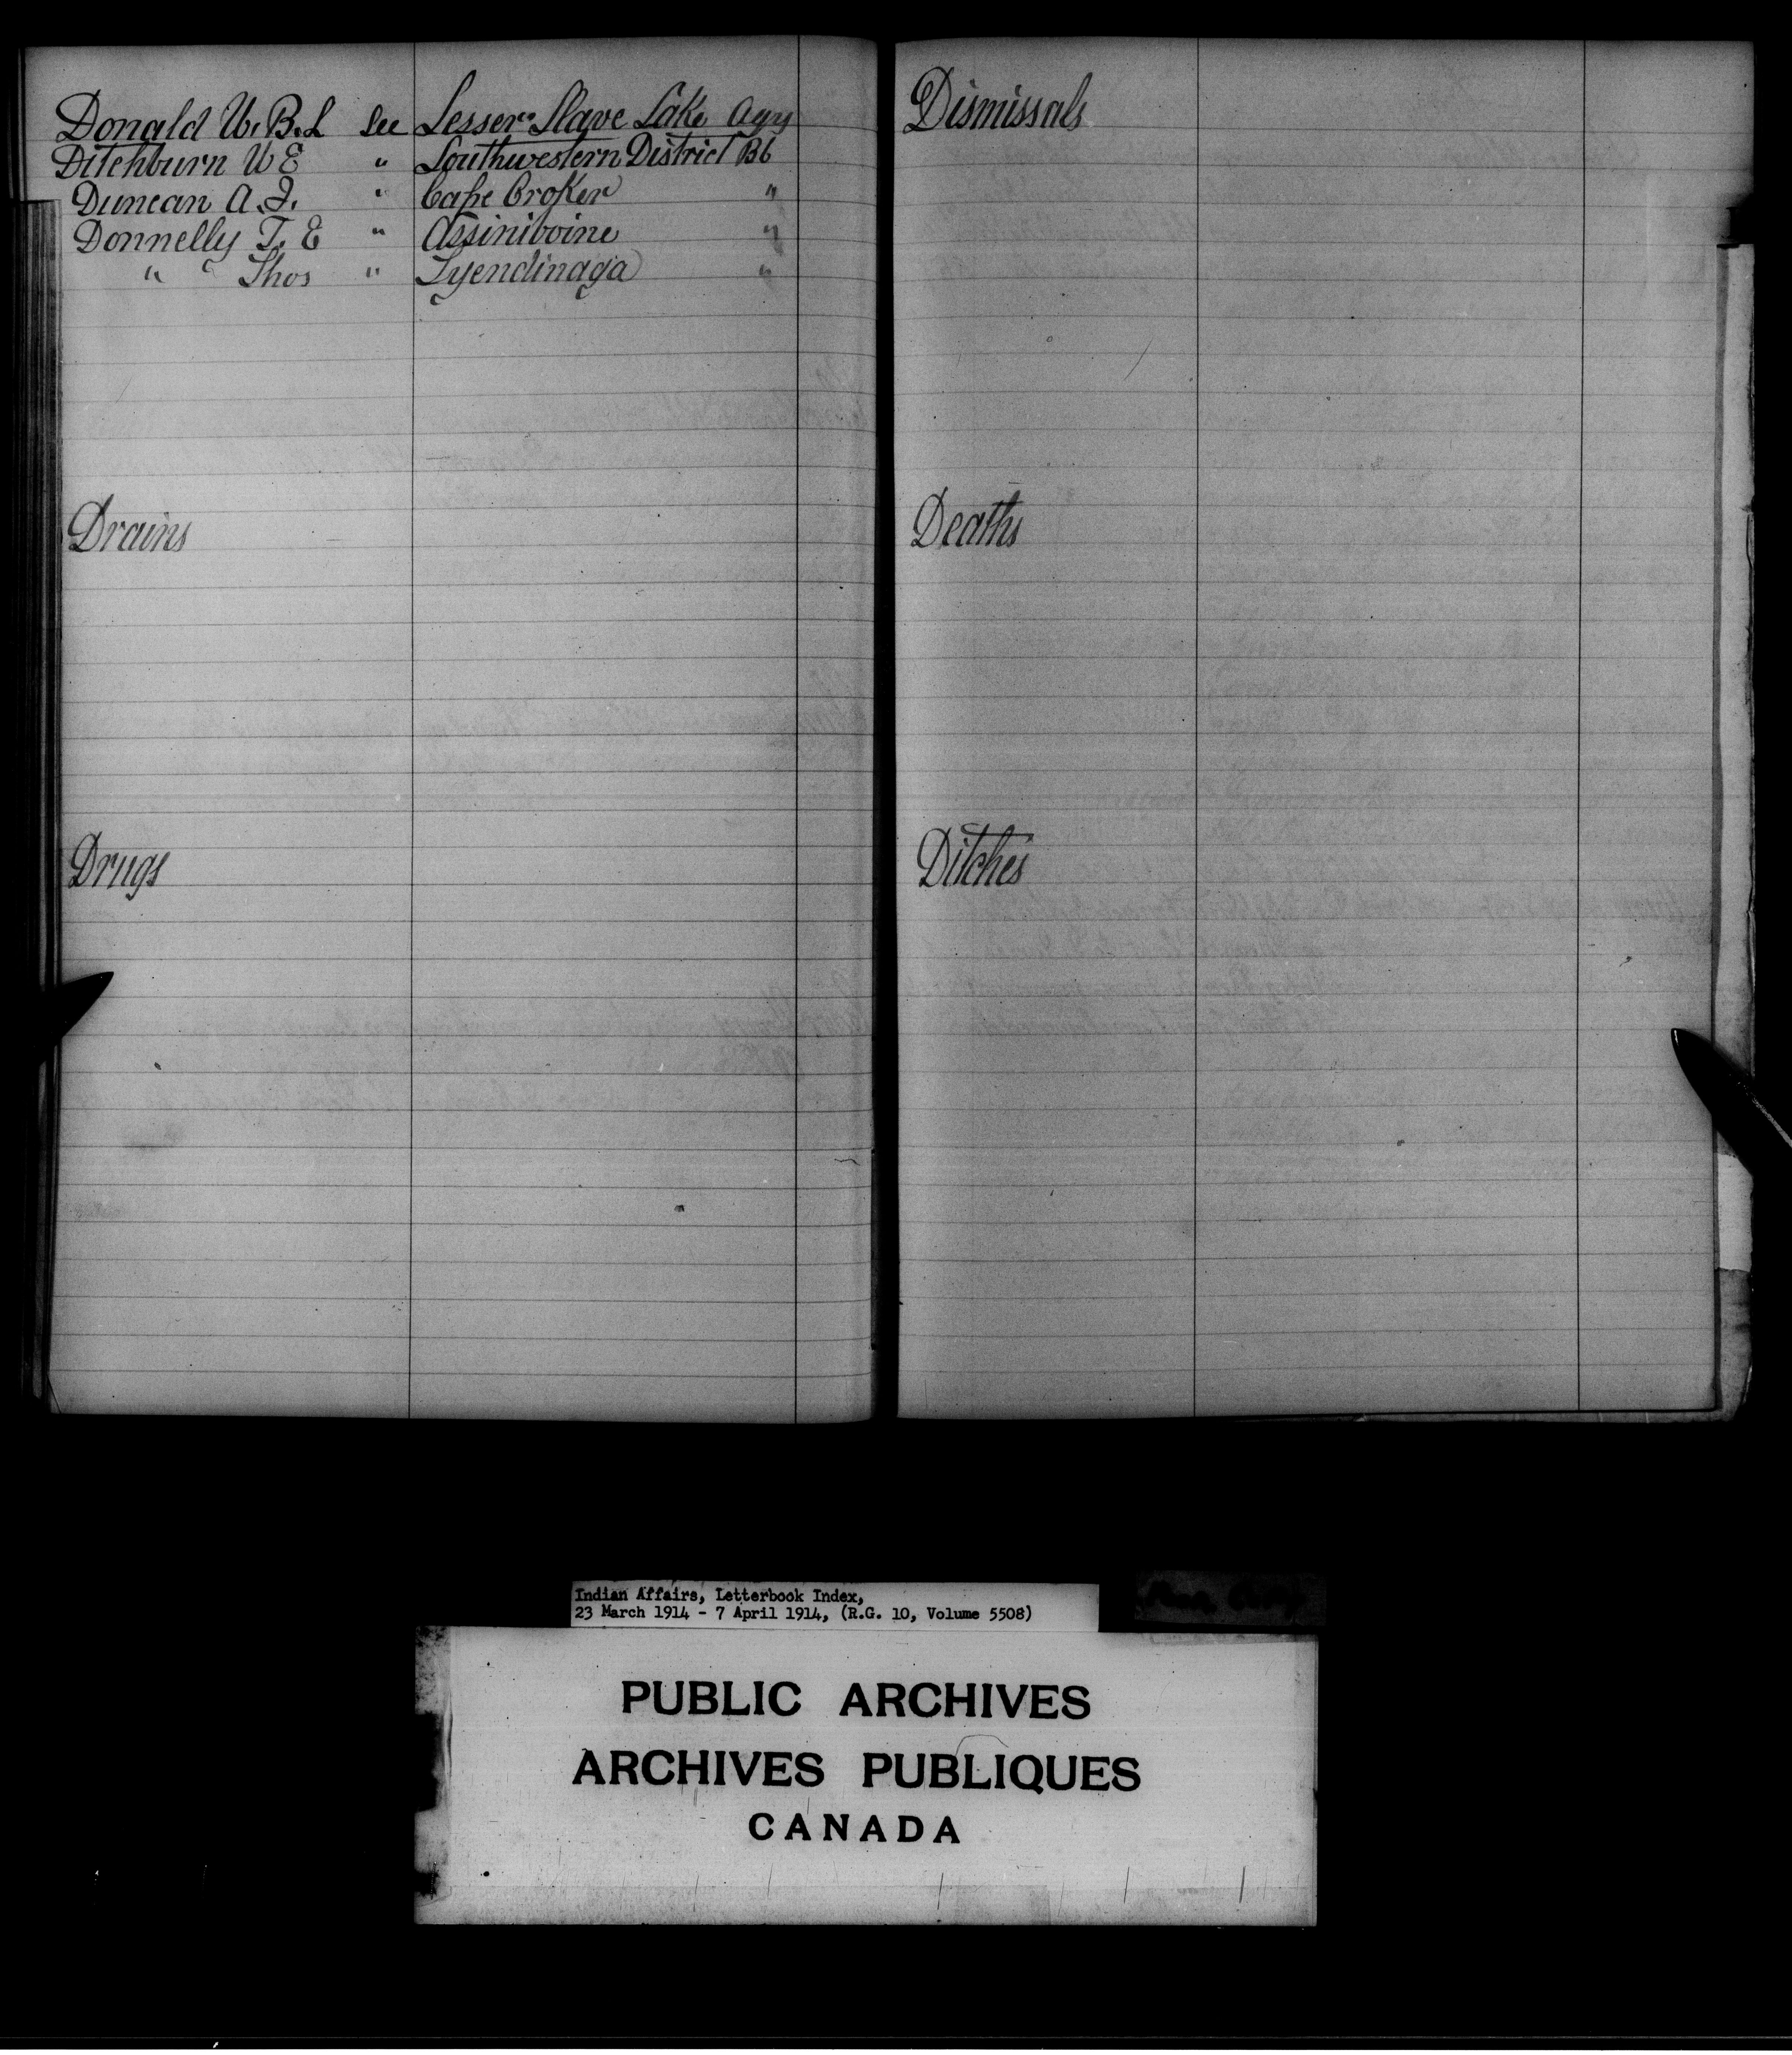 Donald W. B. L See Lesser Slave Lake Agy
Ditchburn W E " Southwestern District BC
Duncan A. J. " Cape Croker "
Donnelly T. E " Assiniboine "
" " Thos " Tyendinaga "
Drains
Drugs
Dismissals
Deaths
Ditches
Indian Affairs, Letterbook Index,
23 March 1914 - 7 April 1914, (R.G. 10, Volume 5508)
PUBLIC ARCHIVES
ARCHIVES PUBLIQUES
CANADA